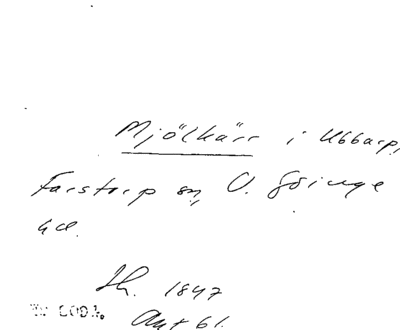 Mjölkärr i Ubbarp,
Farstorp sn, V. Göinge
hd.
Sk. 1847
Akt 61.